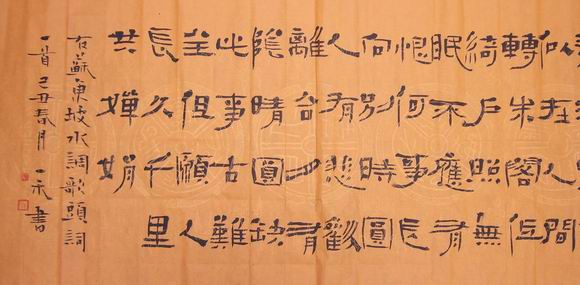 似在人間
轉朱閣低
綺戶照無
眠不應有
恨何事長
向別時圓
人有悲歡
離合月有
陰晴圓缺
此事古難
全但願人
長久千里
共嬋娟
右蘇東坡水調歌頭詞
一首己丑春月一書